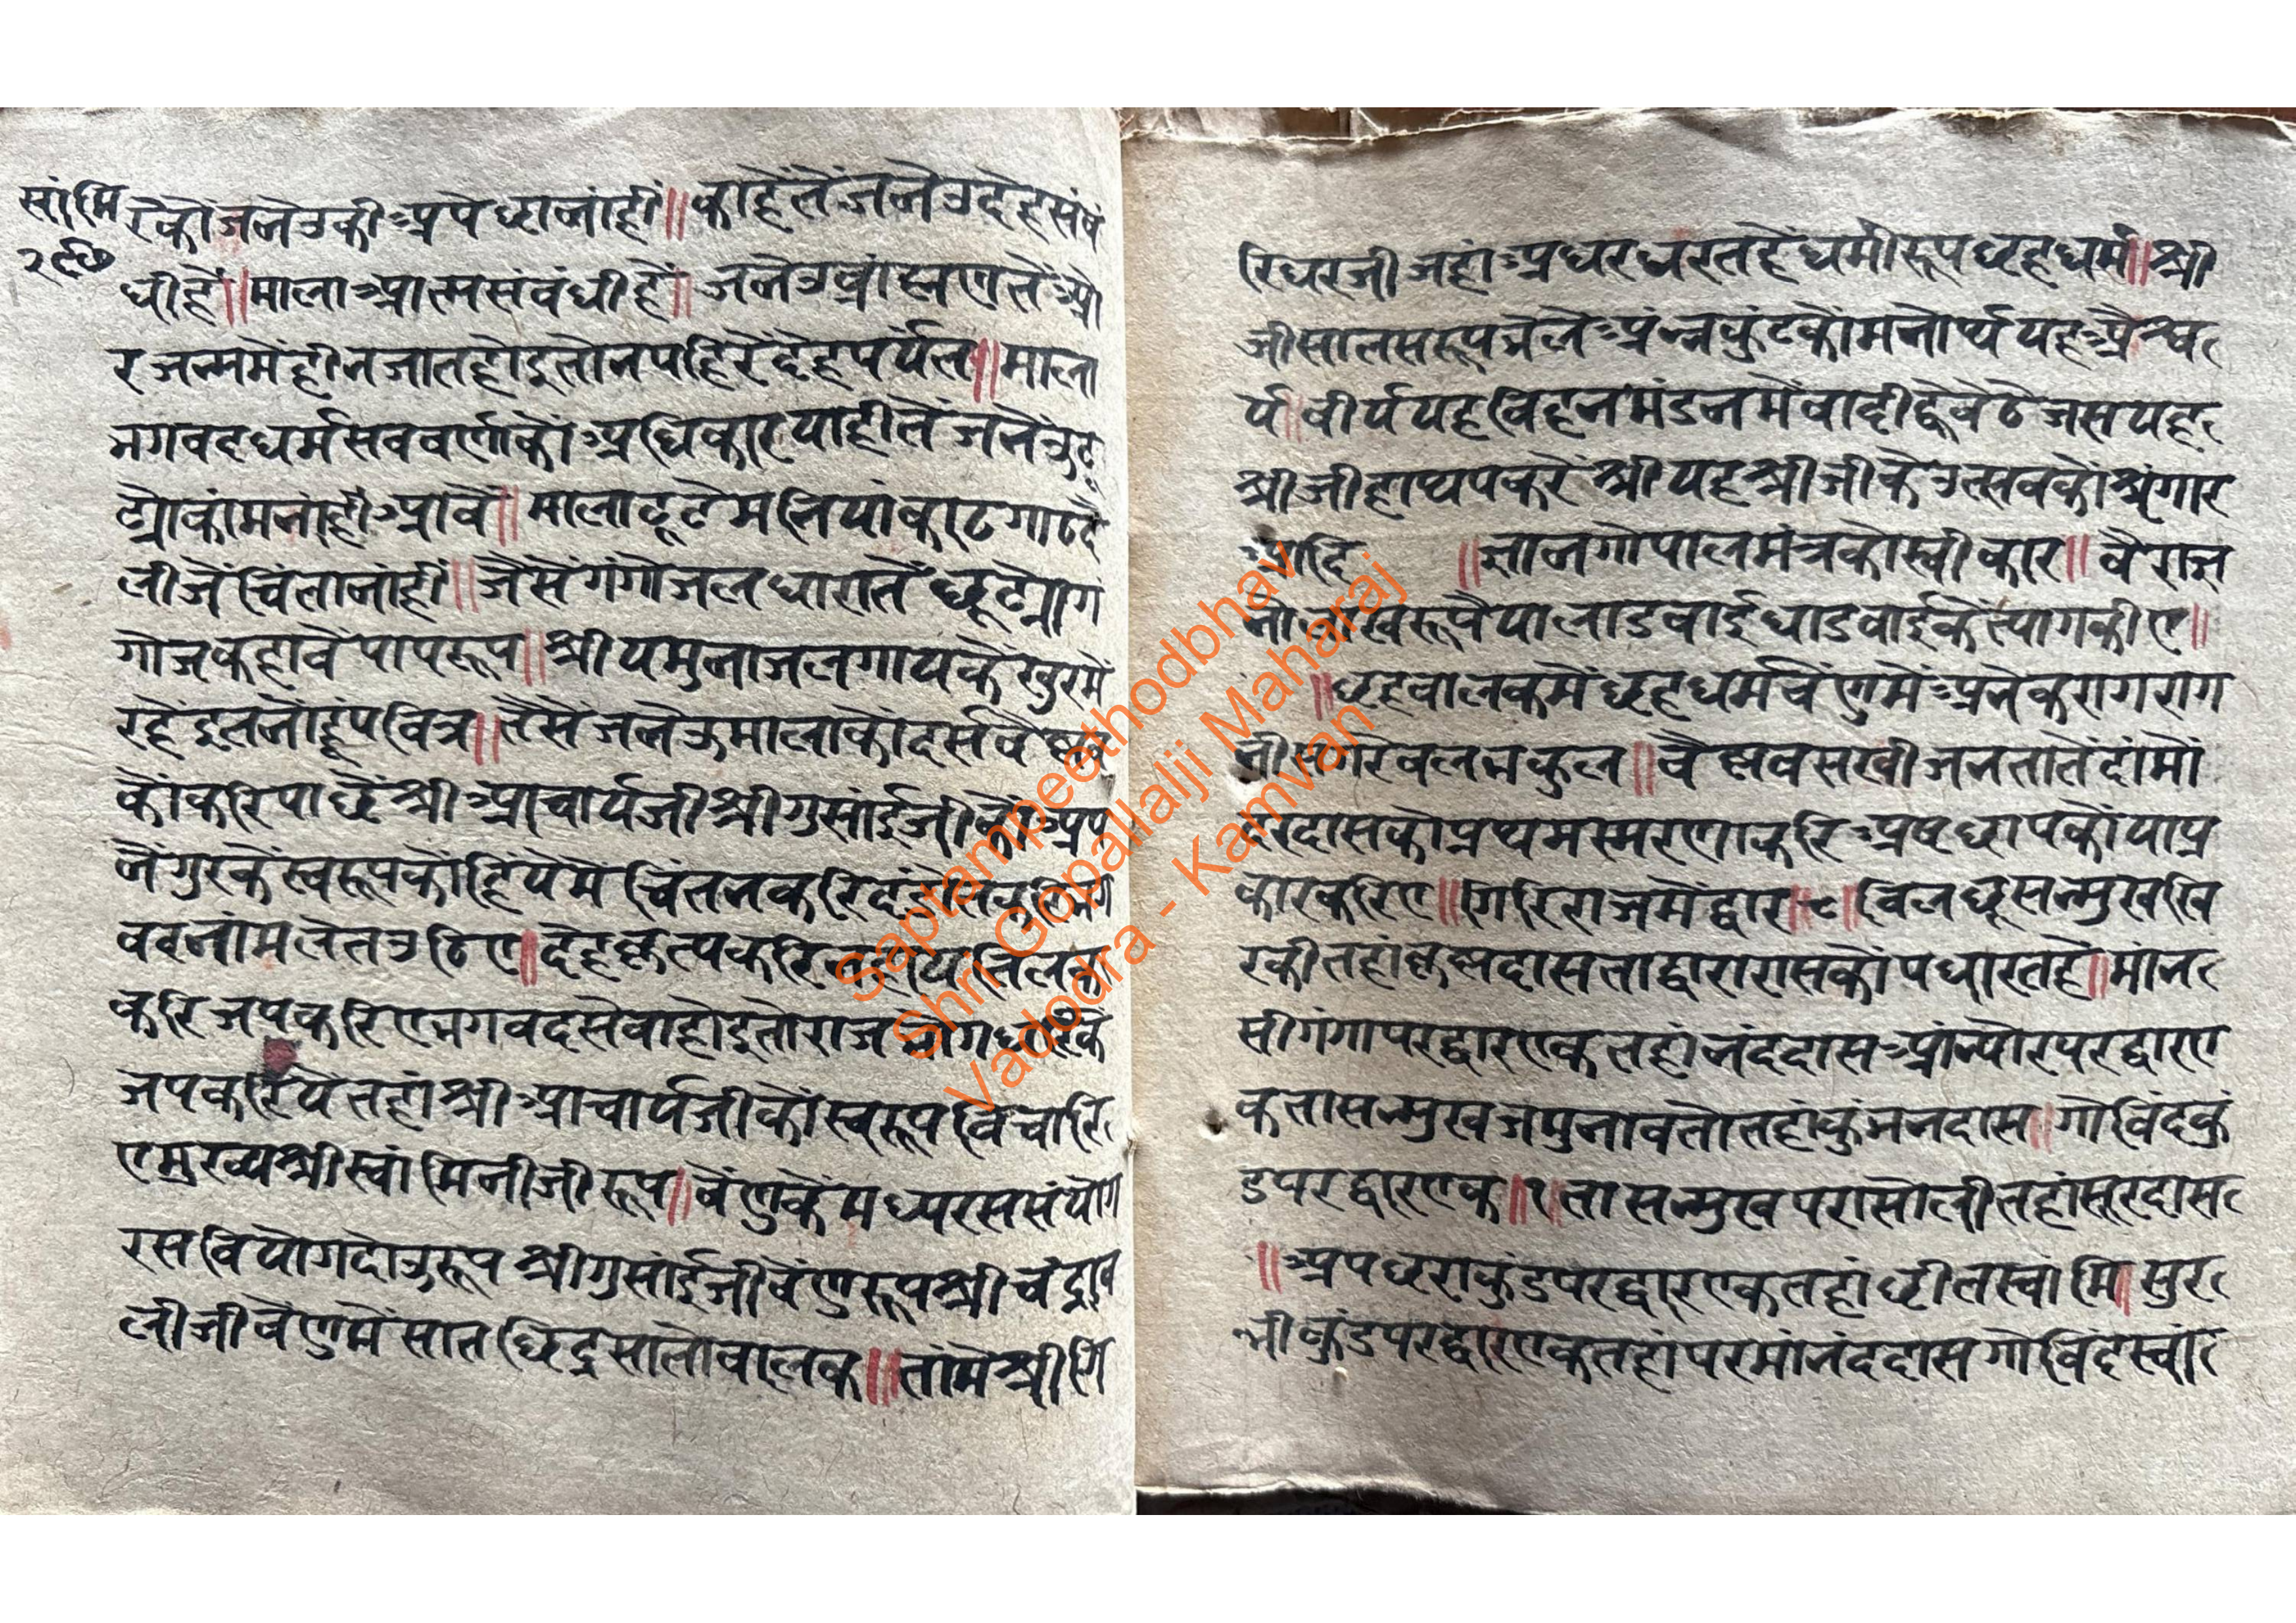 सांमि
२९७
रकौ जनेउकी अपेछा नांही ॥ काहेतें जनेउ देह संबं
धी हें ॥ माला आत्मसंबंधी हें ॥ जनेउ ब्रांह्मण तें औ
र जन्म में हीन जात होइ तो न पहिरें देह पर्यंत ॥ माला
भगवद धर्म सब वर्णकों अधिकार याहीतें जनेउ टू
ट्यो कांम नांही आवें ॥ माला टूटे मनियां काठ गाठ दै
लीजें चिंता नांही ॥ जैसें गंगाजल धारातें छूट्यो गं
गोज कहावें पापरूप ॥ श्री यमुनाजल गायके खुरमें
रहें इतनों हूं पवित्र ॥ तैसें जनेऊ मालाकों दर्स वैष्णव
कों करि पाछें श्री आचार्यजी श्री गुसांईजी कों अप
नें गुरकें स्वरूपकों हियेमें चिंतन करि दंडोत करि भग
वदनांम लेत उठिए ॥ देहकृत्य करि न्हाय तिलक
करि जप करिए भगवद सेवा होइ तो राजभोग धरिकें
जप करिये तहां श्री आचार्यजीकों स्वरूप विचारि
ए मुख्य श्री स्वांमिनीजी रूप ॥ वेंणुकें मध्य रस संयोग
रस वियोग दोउ रूप श्री गुसांईजी वेंणुरूप श्री चंद्राव
लीजी वेंणुमें सात छिद्र सातो बालक ॥ तांमें श्री गि
रिधरजी जहां अधर धरत हें धर्मी रूप छह धर्म ॥ श्री
जी सात सरूप भेले अंन्नकुंटकों मनोर्थ यह अैश्व
र्य ॥ वीर्य यह विहनमंडनमें वादी ह्वै बैठे जस यह
श्रीजी हाथ पकरें श्री यह श्रीजी के उत्सवकों श्रृंगार
आदि ॥ ज्ञान गोपाल मंत्रको स्वीकार ॥ वैराज्ञ
लाडबाई धाडबाईकें त्याग कीए ॥
॥ छह बालकमें छह धर्म वेंणुमें अनेक राग राग
नी सगरे वलभकुल ॥ वैष्णव सखीजन तातें दांमो
दरदासको प्रथम स्मरण करि अष्टछापकों या प्र
कार करिए ॥ गिरिराजमें द्वार ॥ ८ ॥ विलछू सन्मुख खि
रकी तहां कृष्णदास ता द्वारा रासकों पधारत हें ॥ मांन
सी गंगा पर द्वार एक तहां नंददास आंन्योर पर द्वार ए
क ता सन्मुख जमुनावतो तहां कुंभनदास ॥ गोविंदकुं
ड पर द्वार एक ॥ १ ॥ ता सन्मुख परासोली तहां सूरदास
॥ अपछराकुंड पर द्वार एक तहां छीतस्वांमि ॥ सुर
भीकुंड पर द्वार एक तहां परमांनंददास गोविंदस्वां